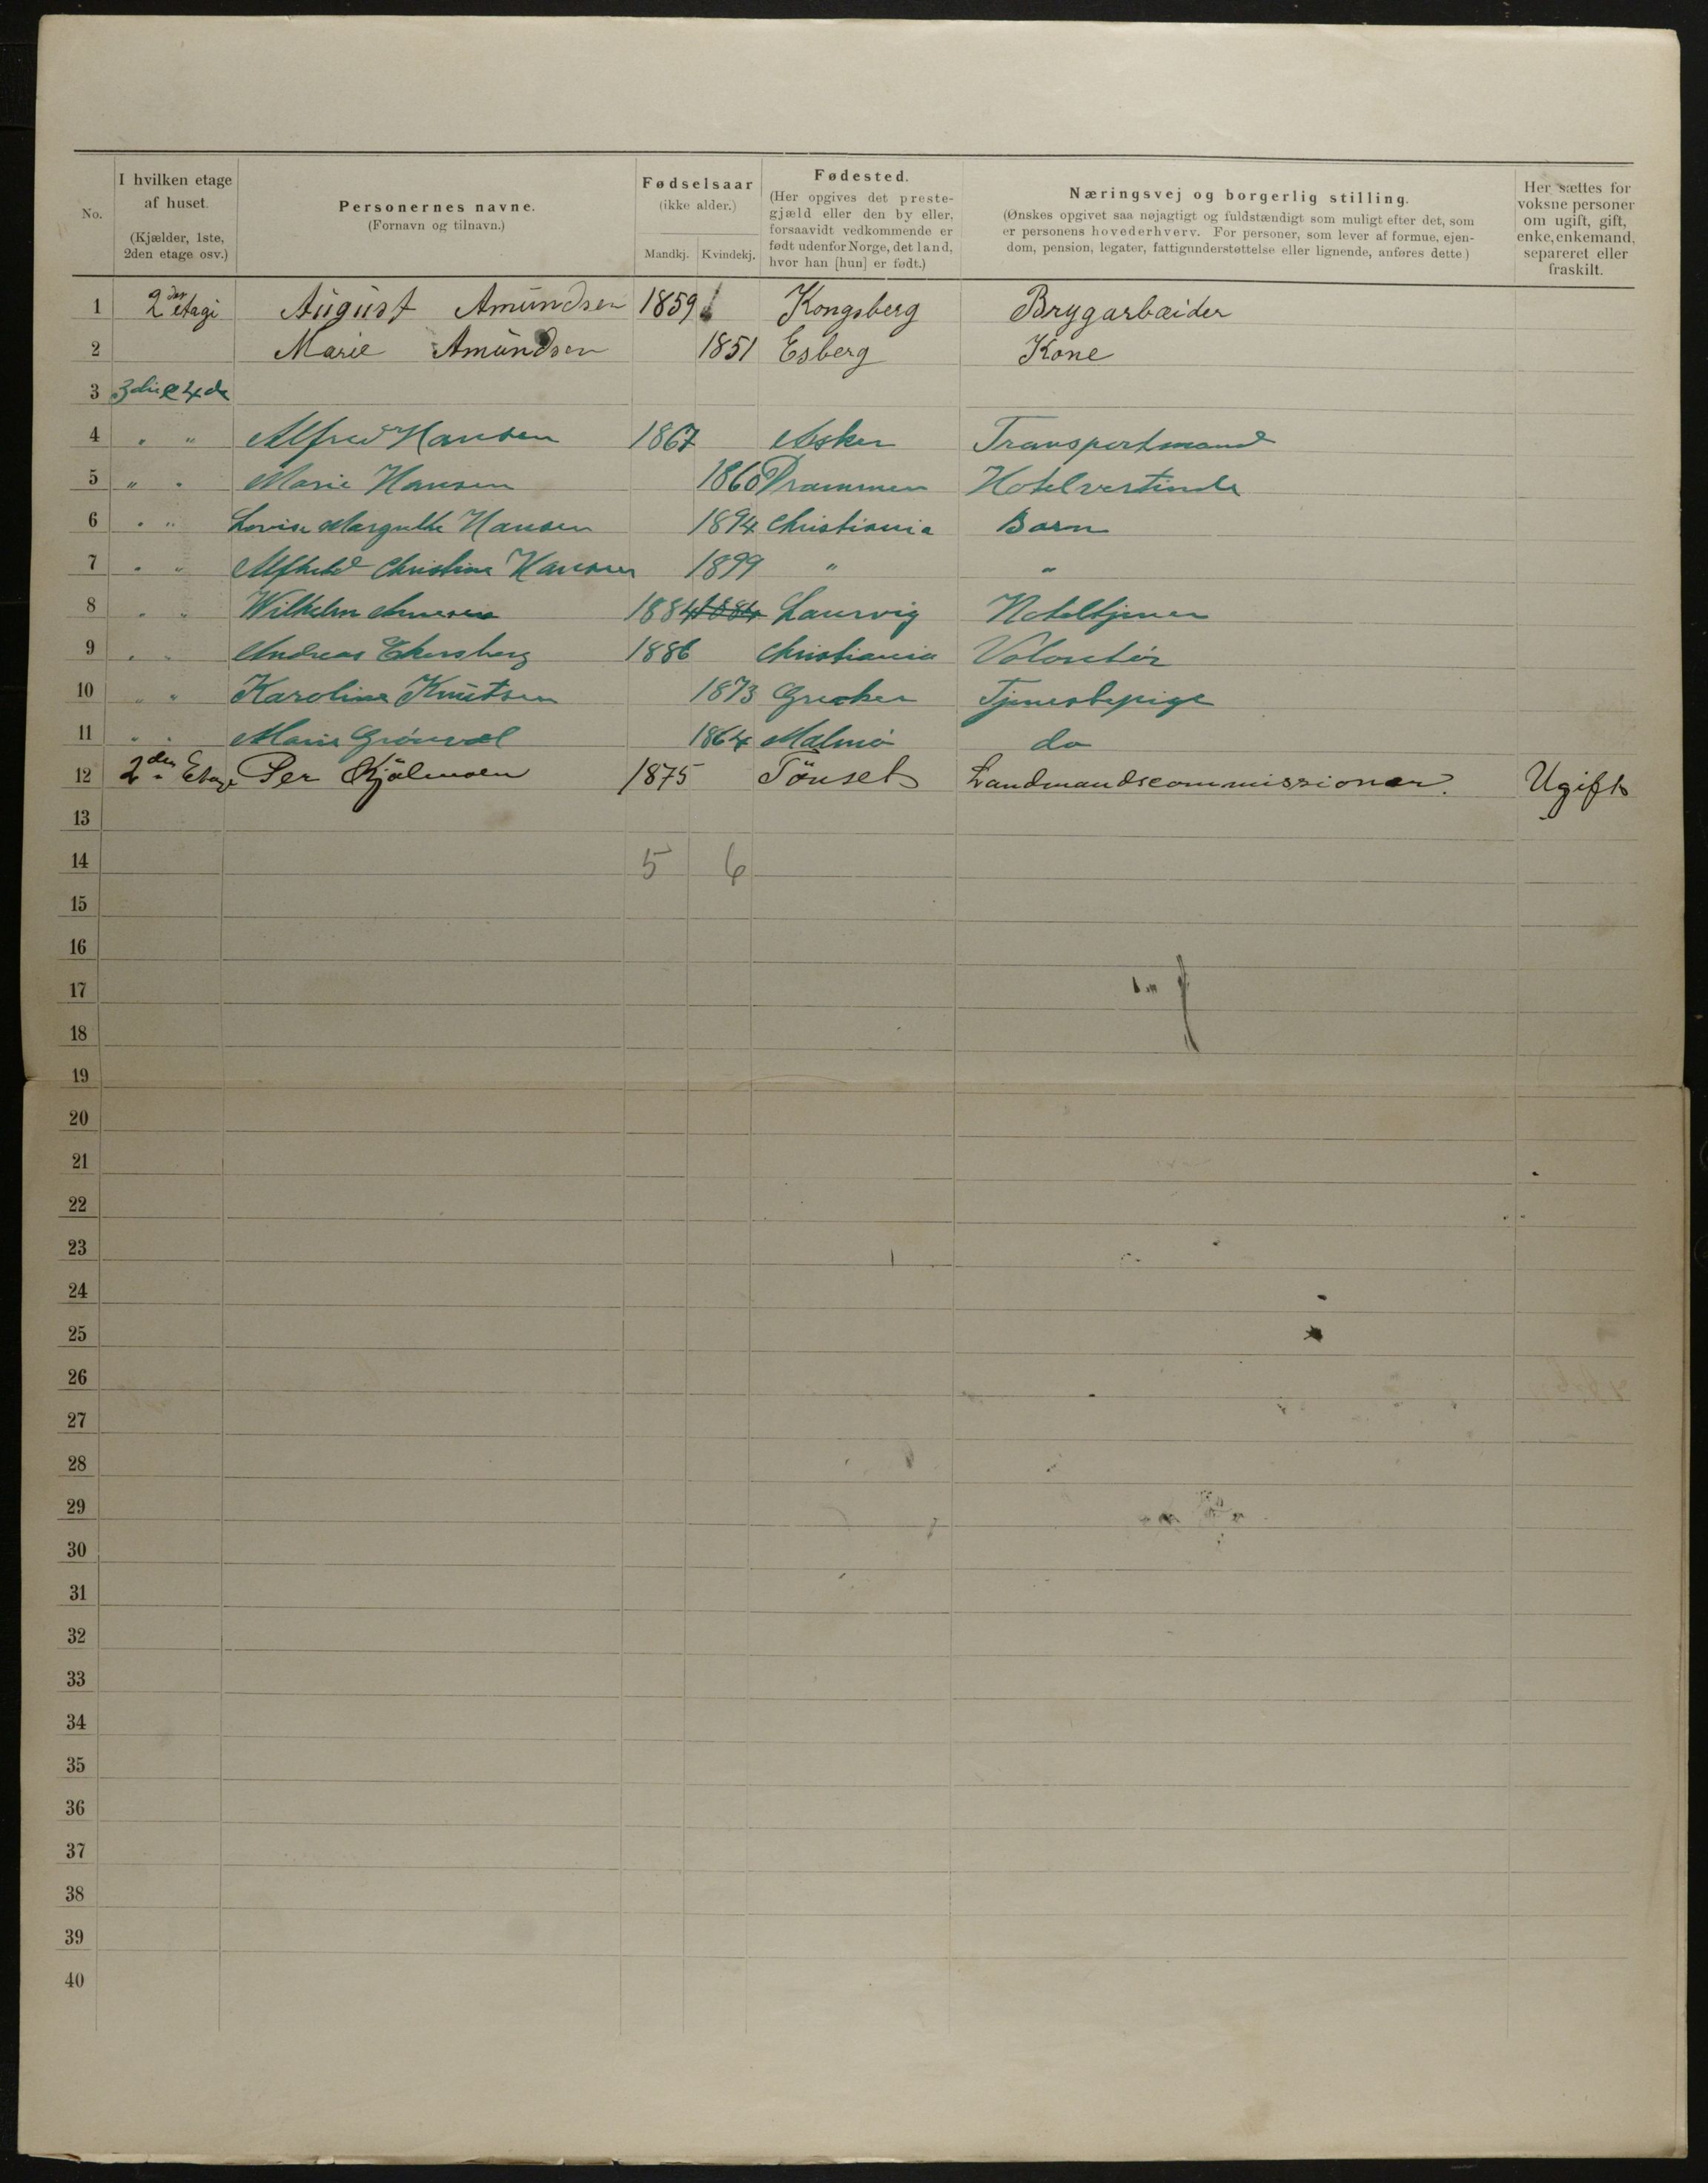 No.
I hvilken etage af huset.
(Kjælder, 1ste, 2den etage osv.)
Personernes navne.
(Fornavn og tilnavn.)
Fødselsaar
(ikke alder.)
Mandkj. Kvindekj.
Fødested.
(Her opgives det preste-
gjæld eller den by eller,
forsaavidt vedkommende er
født udenfor Norge, det land,
hvor han [hun] er født.)
Næringsvej og borgerlig stilling.
(Ønskes opgivet saa nøjagtigt og fuldstændigt som muligt efter det, som
er personens hovederhverv. For personer, som lever af formue, ejen-
dom, pension, legater, fattigunderstøttelse eller lignende, anføres dette.)
Her sættes for
voksne personer
om ugift, gift,
enke, enkemand,
separeret eller
fraskilt.
1 2den etagi August Amundsen 1859 Kongsberg Brygarbæider
2 Marie Amundsen 1851 Esberg Kone
3 3die & 4de
4 " " Alfred Hansen 1867 Asker Transportmand
5 " " Marie Hansen 1868 Drammen Hotelvertinde
6 " " Lovise Margrethe Hansen 1894 Christiania Barn
7 " " Alfhild Christine Hansen 1899 " "
8 " " Wilhelm 1884 1884 Laurvig Hoteltjener
9 " " Andreas Ekersberg 1886 Christiania Volontør
10 " " Karoline Knutsen 1873 Tjenestepige
11 " " Marie Grönval 1864 Malmö do
12 2den Etage Per 1875 Tönset Landmandscommissionær. Ugift
13
14 5 6
15
16
17
18
19
20
21
22
23
24
25
26
27
28
29
30
31
32
33
34
35
36
37
38
39
40